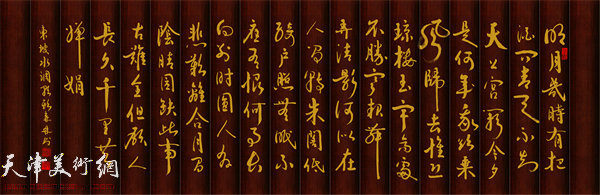 明月幾時有把
酒問青天不知
天上宮闕今夕
是何年我欲乘
風歸去惟恐
瓊樓玉宇高處
不勝寒起舞
弄清影何似在
人間轉朱閣低
綺戶照無眠不
應有恨何事長
向別時圓人有
悲歡離合月有
陰晴圓缺此事
古難全但願人
長久千里共
嬋娟
東坡水調歌頭
天津美術網